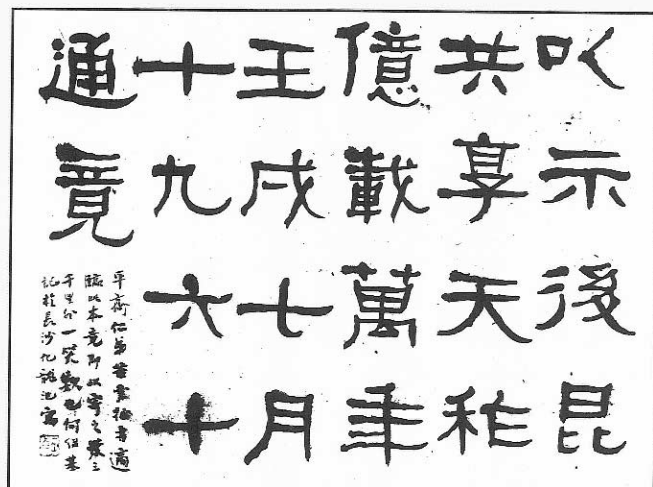 以示後昆
共享天祚
億載萬年
壬戌七月
十九六十
通竟
平齋仁弟索拙書適
臨此本竟即以寄之發三
千里外一笑也何紹基
記於長沙化龍池寓